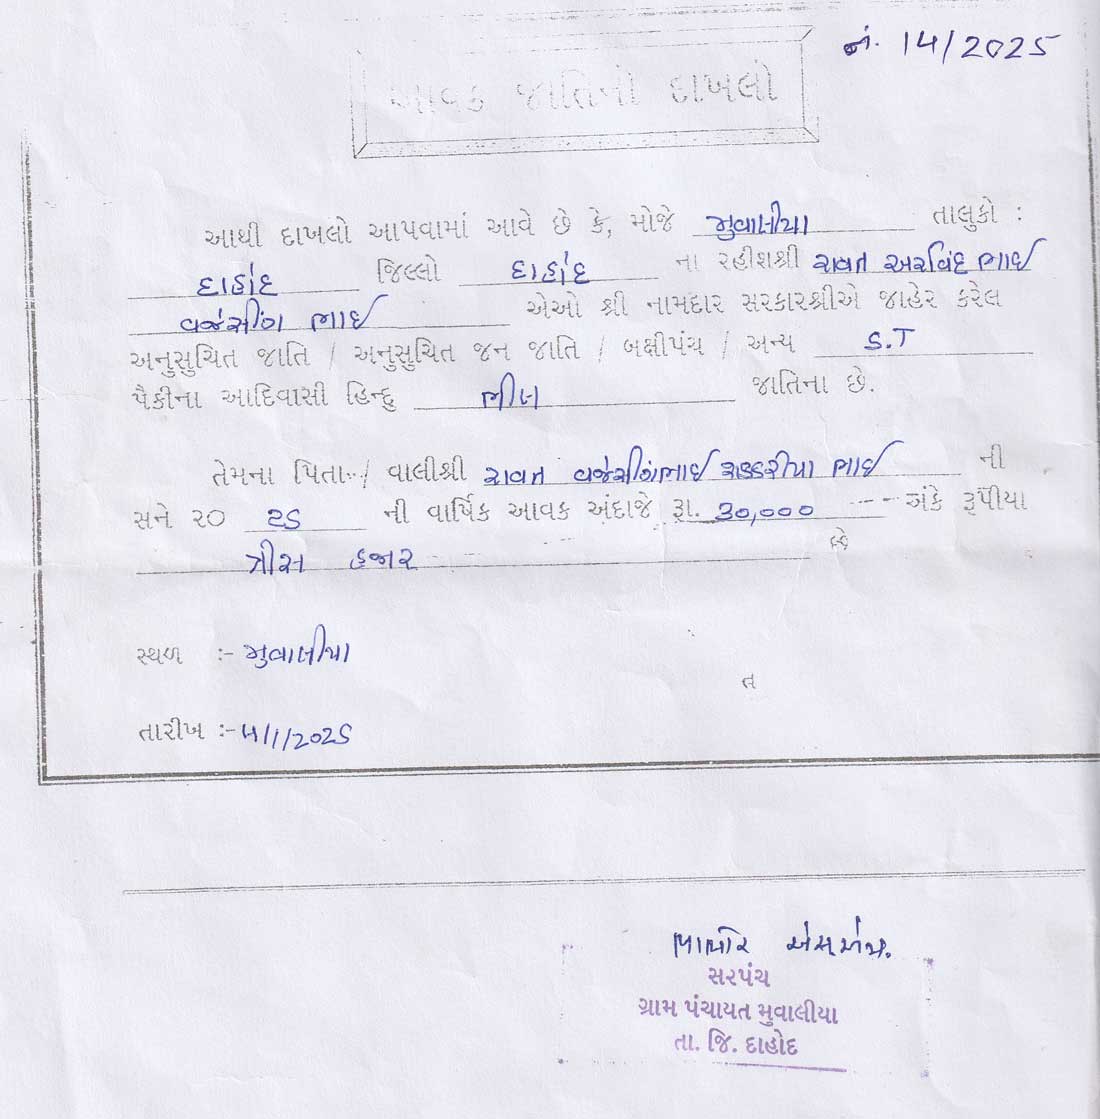 નં. 14/2025
આવક જાતિનો દાખલો
આથી દાખલો આપવામાં આવે છે કે, મોજે મુવાલીયા તાલુકો :
દાહોદ જિલ્લો દાહોદ ના રહીશશ્રી રાવત અરવિંદ ભાઇ
વજેસીંગ ભાઇ એઓ શ્રી નામદાર સરકારશ્રીએ જાહેર કરેલ
અનુસુચિત જાતિ / અનુસુચિત જન જાતિ / બક્ષીપંચ / અન્ય S.T
પૈકીના આદિવાસી હિન્દુ ભીલ જાતિના છે.
તેમના પિતા / વાલીશ્રી રાવત વજેસીંગભાઇ ભાઇ ની
સને ૨૦ ૨૬ ની વાર્ષિક આવક અંદાજે રૂા. 30,000 અંકે રૂપીયા
ત્રીસ હજાર છે
સ્થળ :- મુવાલીયા
ત
તારીખ :- ૫/1/202૬
સરપંચ
ગ્રામ પંચાયત મુવાલીયા
તા. જિ. દાહોદ